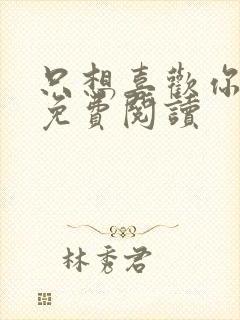 只想喜歡你
免費閱讀
林秀君